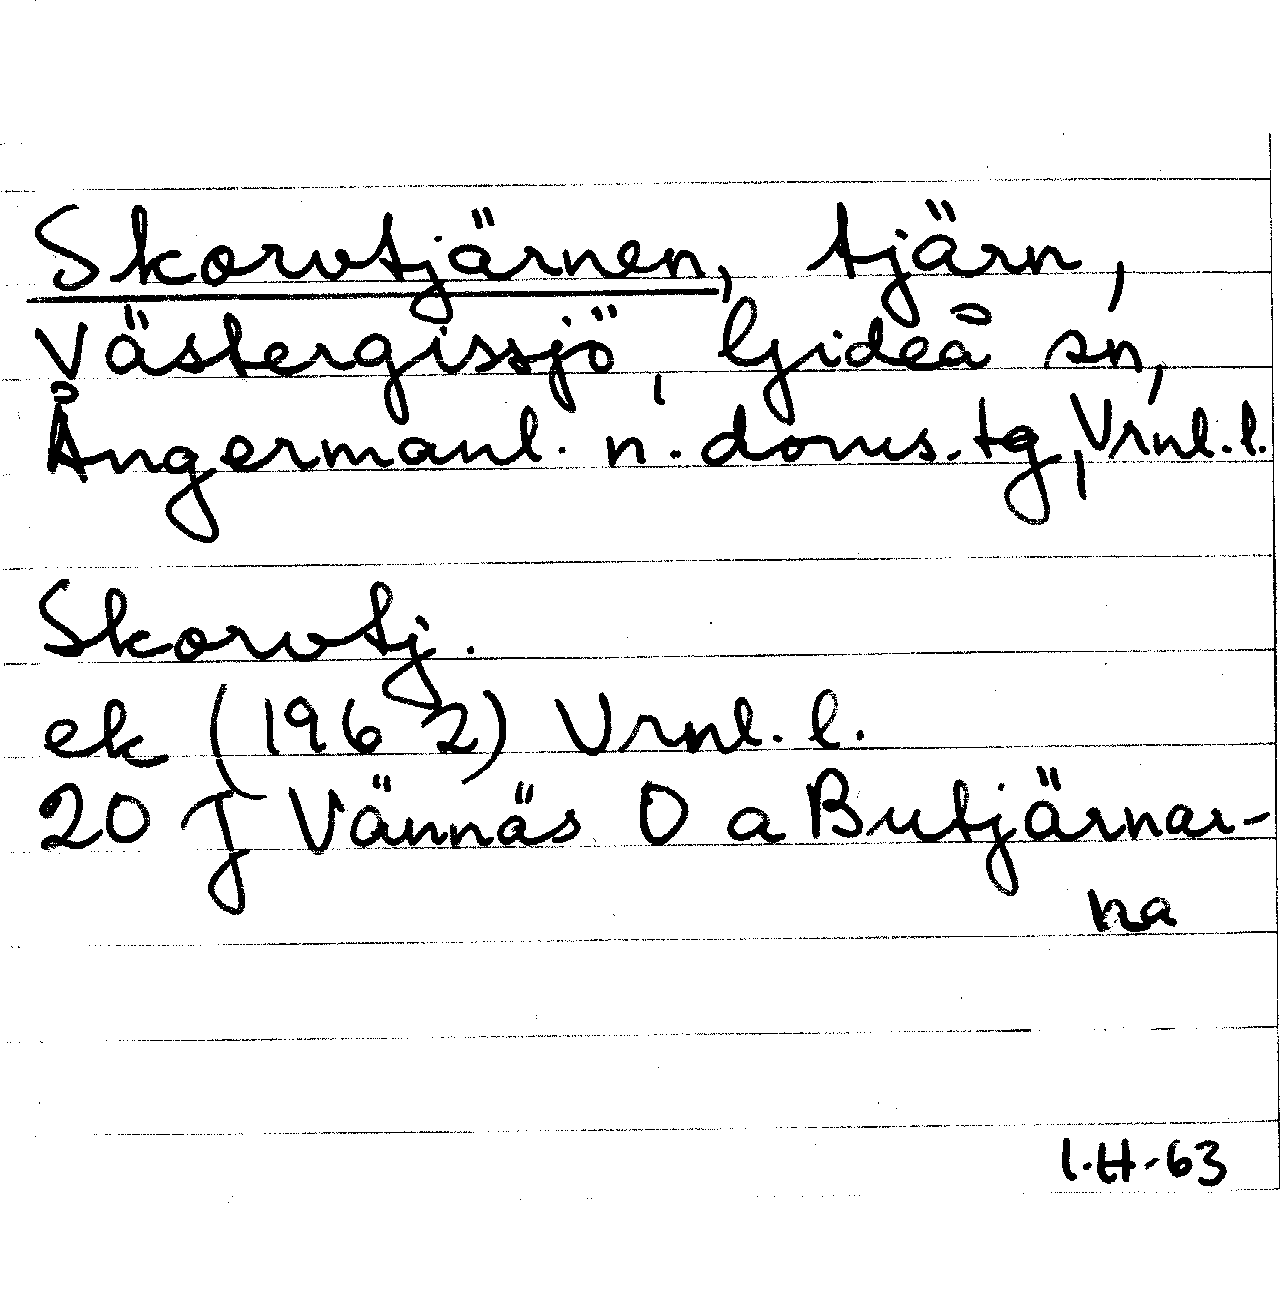 Skorvtjärnen, tjärn,
Västergissjö, Gideå sn,
Ångermanl. n. doms.tg, Vrnl.l.
Skorvtj.
ek (1962) Vrnl. l.
20 J Vännäs O a Butjärnar-
na
I.H-63